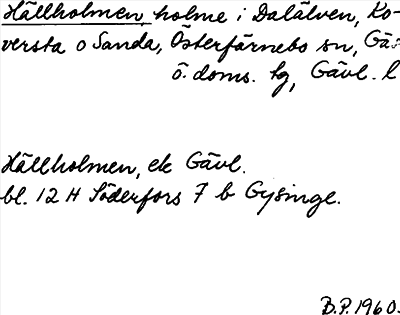 Hällholmen, holme i Dalälven, Ko-
versta o Sanda, Österfärnebo sn, Gäs
ö. doms. tg, Gävl. l
Hällholmen, ek Gävl.
bl. 12 H Söderfors 7 b Gysinge.
B.P. 1960.